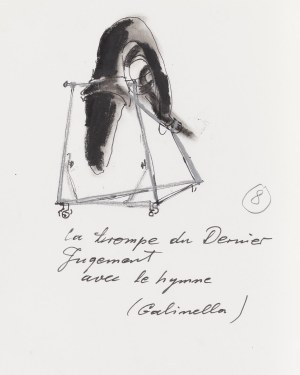 8
la trompe du Dernier
Jugement
avec le hymne
(Galinella)